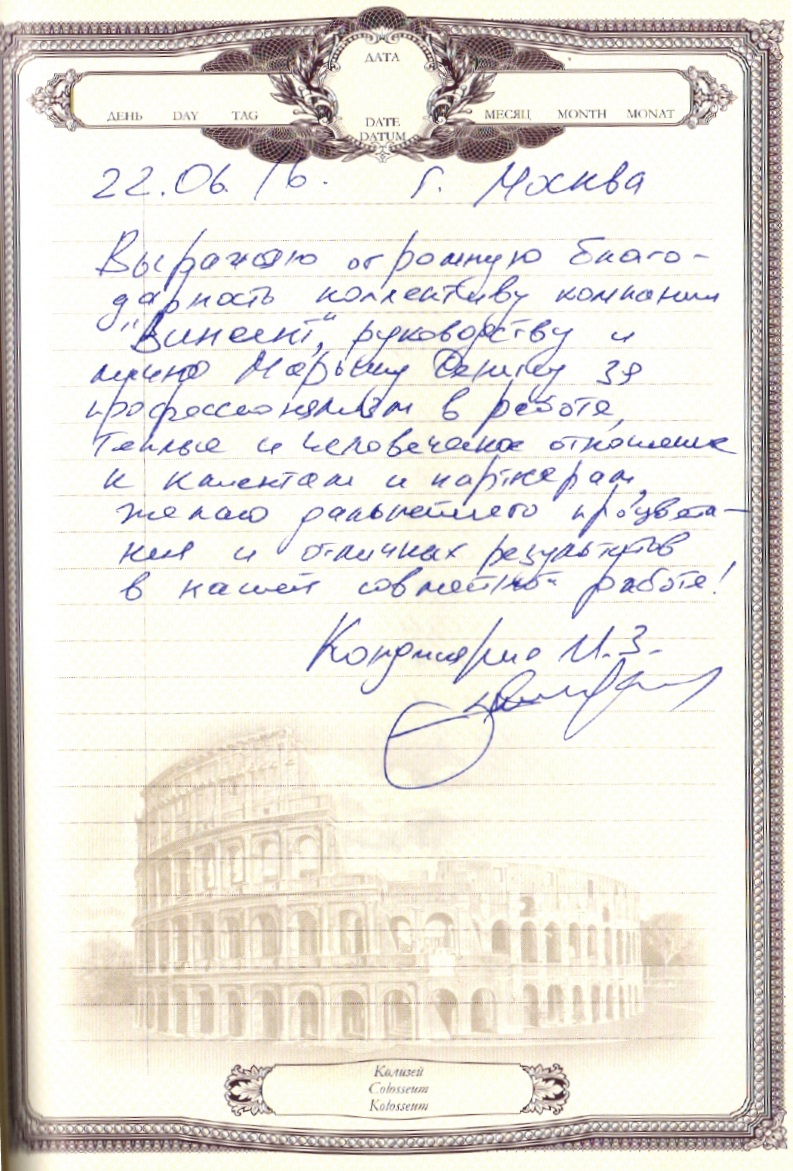 ДАТА
ДЕНЬ DAY TAG
МЕСЯЦ MONTH MONAT
DATE
DATUM
22.06.16. г. Москва
Выражаю огромную благо-
дарность коллективу компании
руководству и
лично Денису за
профессионализм в работе,
теплые и человеческое отношение
к клиентам и партнерам,
желаю дальнейшего процвета-
ния и отличных результатов
в нашей совместной работе!
И.З.
Колизей
Colosseum
Kolosseum